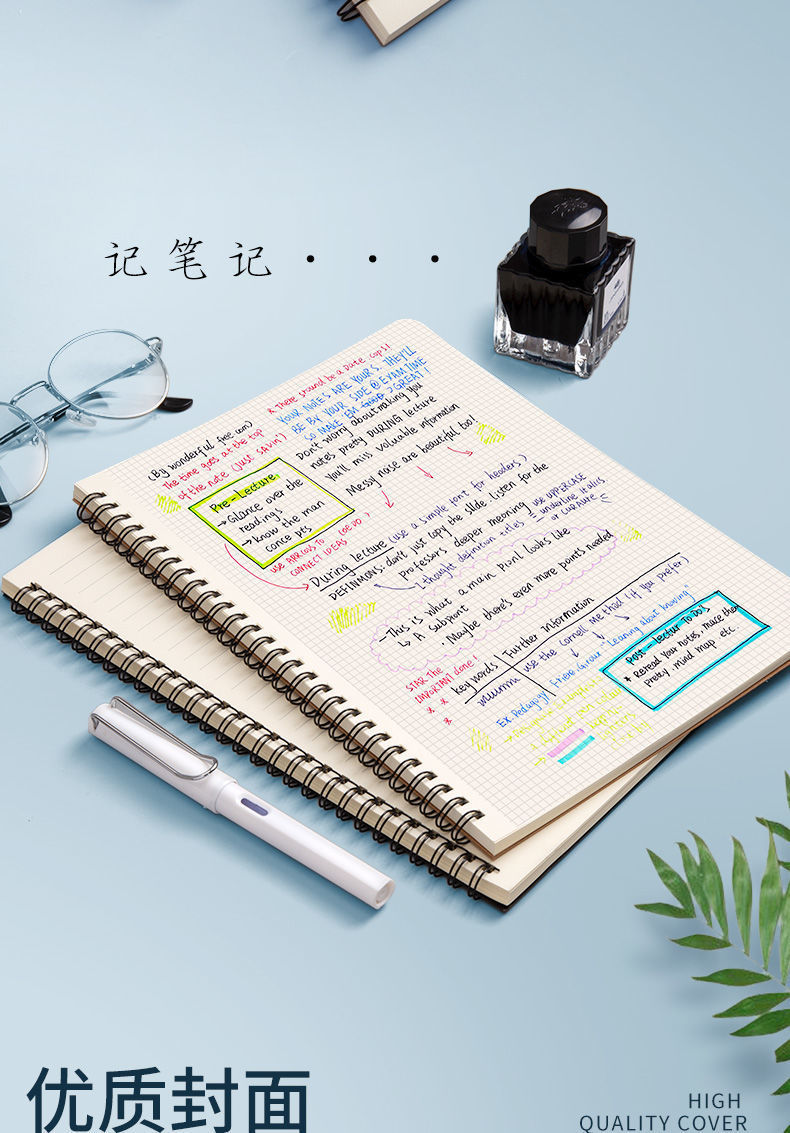 记笔记···
* There should be a Date cups!
YOUR NOTES ARE YOURS. THEY'LL
BE BY YOUR SIDE @ EXAM TIME
SO MAKE EM GREAT!
Don't worry about making you
notes pretty DURING lecture
You'll miss valuable information
Messy nose are beautiful too!
(By wonderful free won)
The time goes at the top
of the note (just savin')
Pre-Lecture
→ Glance over the
readings
→ know the man
conce pts
USE ARROWS TO
CONNECT IDEAS
During lecture (use a simple font for headers)
DEFINMONS: don't just copy the slide. listen for the
Professors deeper meaning
I thought definition titles
use UPPERCASE
underline italics
or CURAURE
This is what a main point looks like
↳ A subpoint
· Maybe there's even more points needed
STAR THE
IMPORTANT done!
* *
*
key words | Further Information
use the cornell me thod (if you prefer)
EX. Pedagogy
"Leaning about knowing"
Post-Lectur To DOS
* Reread Your notes, mace them
pretty. mind map etc.
优质封面
HIGH
QUALITY COVER